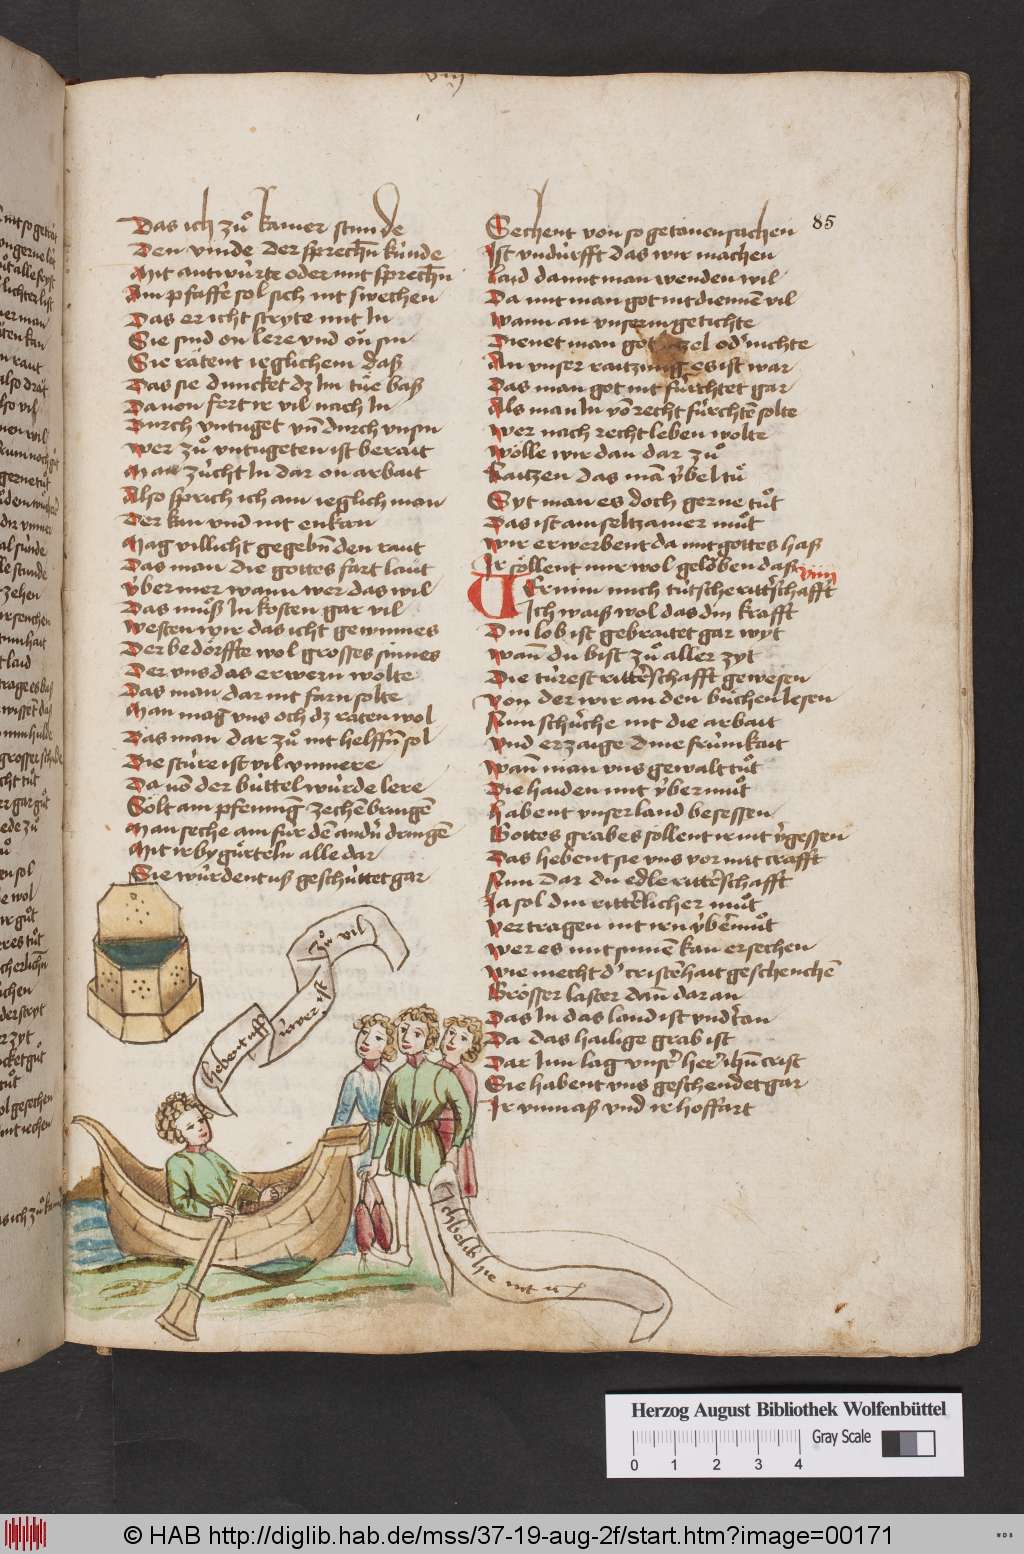 85
Das ich zuͦ kamer stunde
Den vinde der sprechn̄ kúnde
Mit antwúrte oder mit sprechn̄
Am pfaffe sol sich nit swechen
Das er icht stryte mit In
Sie sind on lere vnd on sin
Sie rätent ieglichem daß
Das sie duncket dz Im tuͤe baß
Da von fert ir vil nach In
Durch vntuget vn̄ durch vnsin
Wer zuͦ vntugeten ist berait
Man zúcht In dar on arbait
Also sprich ich am ieglich man
Der kan vnd nit enkan
Mag villicht gegebn̄ den raut
Das man die gottes fart laut
v́ber mer wann wer das wil
Das muͦß In kosten gar vil
Westen wir das icht gewinnes
Der bedörffte wol grosses sinnes
Der vns das erwern wolte
Das man dar nit farn solte
Man mag vns och dz raten wol
Das man dar zuͦ nit helffn̄ sol
Die stúre ist vil vnmere
Da vō der búttel wúrde lere
Sölt am pfenning zechen bringē
Man seche am fúr dē andn̄ dringē
Mit ir bygúrteln alle dar
Sie wúrdent uß geschúttet gar
hebent uff
úwer ist
zuͦ vil
Ich belib hie mit
Sechent von so getanen sachen
Ist vndúrfft das wir machen
Laid da mit man wenden wil
Da mit man got nit dienē vil
Wann an vnserm getichte
Dienet man got
An vnser raitzung es ist war
Das man got nit fúrchtet gar
Als man In vō recht fúrchtē solte
Wer nach recht leben wolte
Wölle wir dan dar zuͦ
Raitzen das mā v́bel tuͦ
Syt man es doch gerne tuͦt
Das ist am seltzamer muͦt
Wir erwerbent da mit gottes haß
Ir söllent mir wol gelöben daß
viiij
Vernim mich tútsche rittr̄schafft
Ich waiß wol das din krafft
Din lob ist gebraitet gar wyt
Wan̄ du bist zuͦ aller zyt
Die túrest rittr̄schafft gewesen
Von der wir an den búchen lesen
Nun schúche nit die arbait
Vnd erzaige dine frúmkait
Wan̄ man vns gewalt tuͦt
Die haiden mit v́bermuͦt
Habent vnser land besessen
Gottes grabes sollent ir nit v̓gessen
Das hebent sie vns vor mit crafft
Nun dar du edle rittr̄schafft
Ja sol din ritterlicher muͦt
Vertragen nit irn v́berm̄uͦt
Wer es mit sinnē kan ersechen
Wie mecht d' cristēhait geschechē
Grösser laster dan̄ dar an
Das In das land ist vndr̄tan
Da das hailige grab ist
Dar Inn lag vnsr̄ her ihū crist
Sie habent vns geschendet gar
Ir vnmaß vnd ir hoffart
Herzog August Bibliothek Wolfenbüttel
Gray Scale
0 1 2 3 4
© HAB http://diglib.hab.de/mss/37-19-aug-2f/start.htm?image=00171